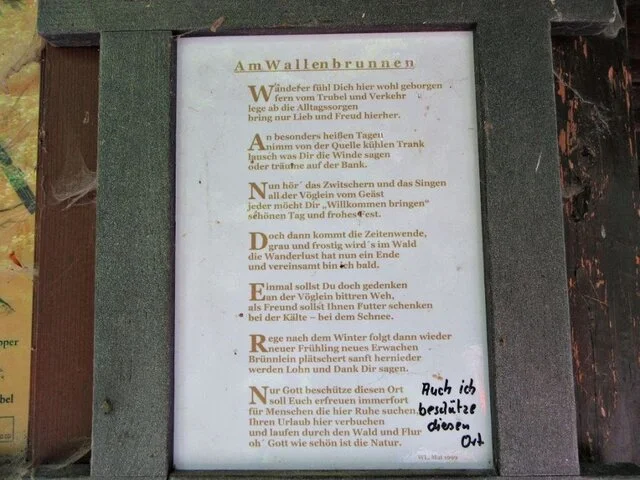 Am Wallenbrunnen
Wanderer fühl Dich hier wohl geborgen
fern vom Trubel und Verkehr
lege ab die Alltagssorgen
bring nur Lieb und Freud hierher.
An besonders heißen Tagen
nimm von der Quelle kühlen Trank
lausch was Dir die Winde sagen
oder träume auf der Bank.
Nun hör´ das Zwitschern und das Singen
all der Vöglein vom Geäst
jeder möcht Dir „Willkommen bringen“
schönen Tag und frohes Fest.
Doch dann kommt die Zeitenwende,
grau und frostig wird´s im Wald
die Wanderlust hat nun ein Ende
und vereinsamt bin ich bald.
Einmal sollst Du doch gedenken
an der Vöglein bittren Weh,
als Freund sollst Ihnen Futter schenken
bei der Kälte – bei dem Schnee.
Rege nach dem Winter folgt dann wieder
neuer Frühling neues Erwachen
Brünnlein plätschert sanft hernieder
werden Lohn und Dank Dir sagen.
Nur Gott beschütze diesen Ort
soll Euch erfreuen immerfort
für Menschen die hier Ruhe suchen,
Ihren Urlaub hier verbuchen
und laufen durch den Wald und Flur
oh´ Gott wie schön ist die Natur.
Mai 1999
Auch ich
beschütze
diesen
Ort